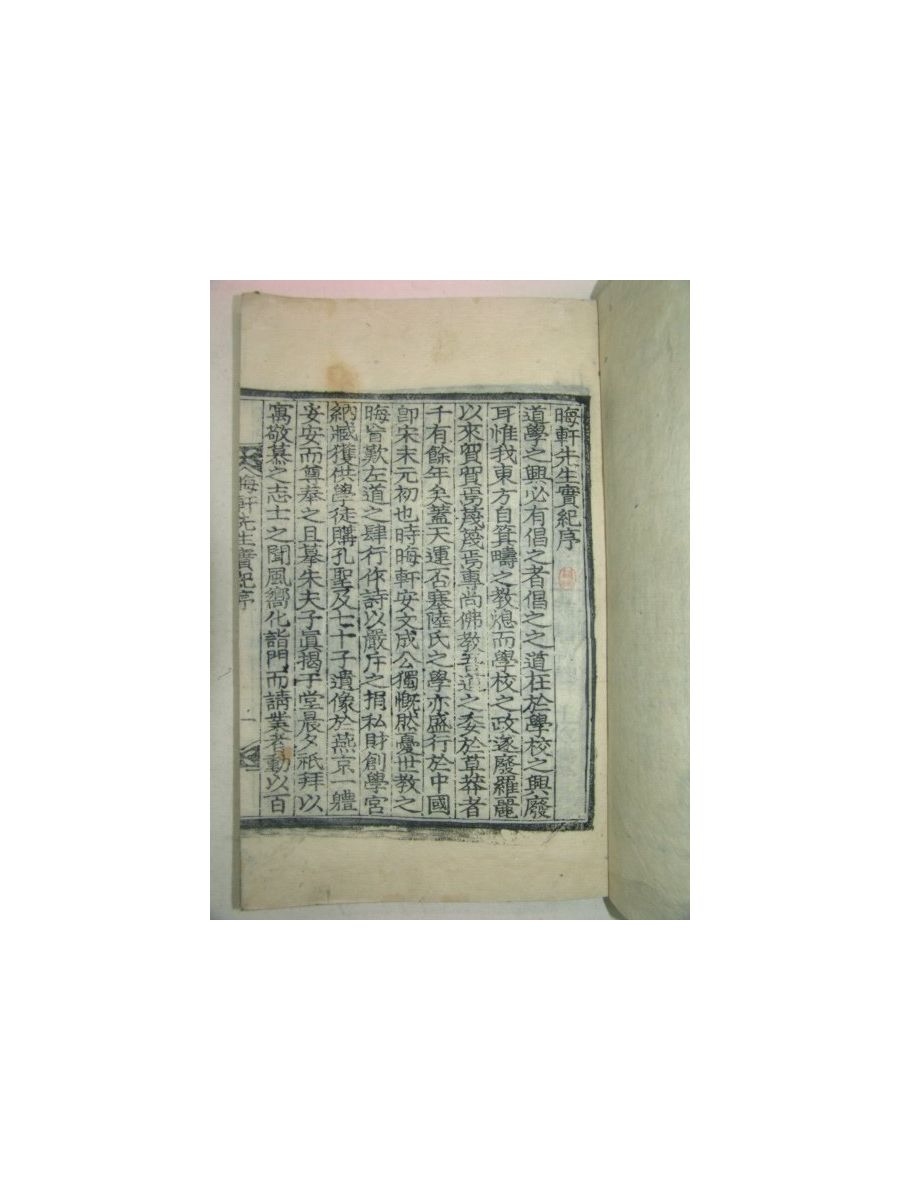 晦軒先生實紀序
道學之興必有倡之者倡之之道在於學校之興廢
耳惟我東方自箕疇之敎熄而學校之政遂廢羅麗
以來貿貿焉蔑蔑焉專尚佛敎吾道之委於草莽者
千有餘年矣蓋天運否塞陸氏之學亦盛行於中國
卽宋末元初也時晦軒安文成公獨慨然憂世敎之
晦盲歎左道之肆行作詩以嚴斥之捐私財創學宮
納臧獲供學徒購孔聖及七十子遺像於燕京一軆
妥安而尊奉之且摹朱夫子眞揭于堂晨夕祇拜以
寓敬慕之志士之聞風嚮化詣門而請業者動以百
晦軒先生實紀序 一